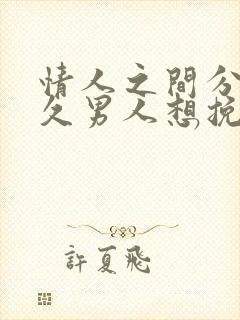 情人之間分
久男人想挽
許夏飛